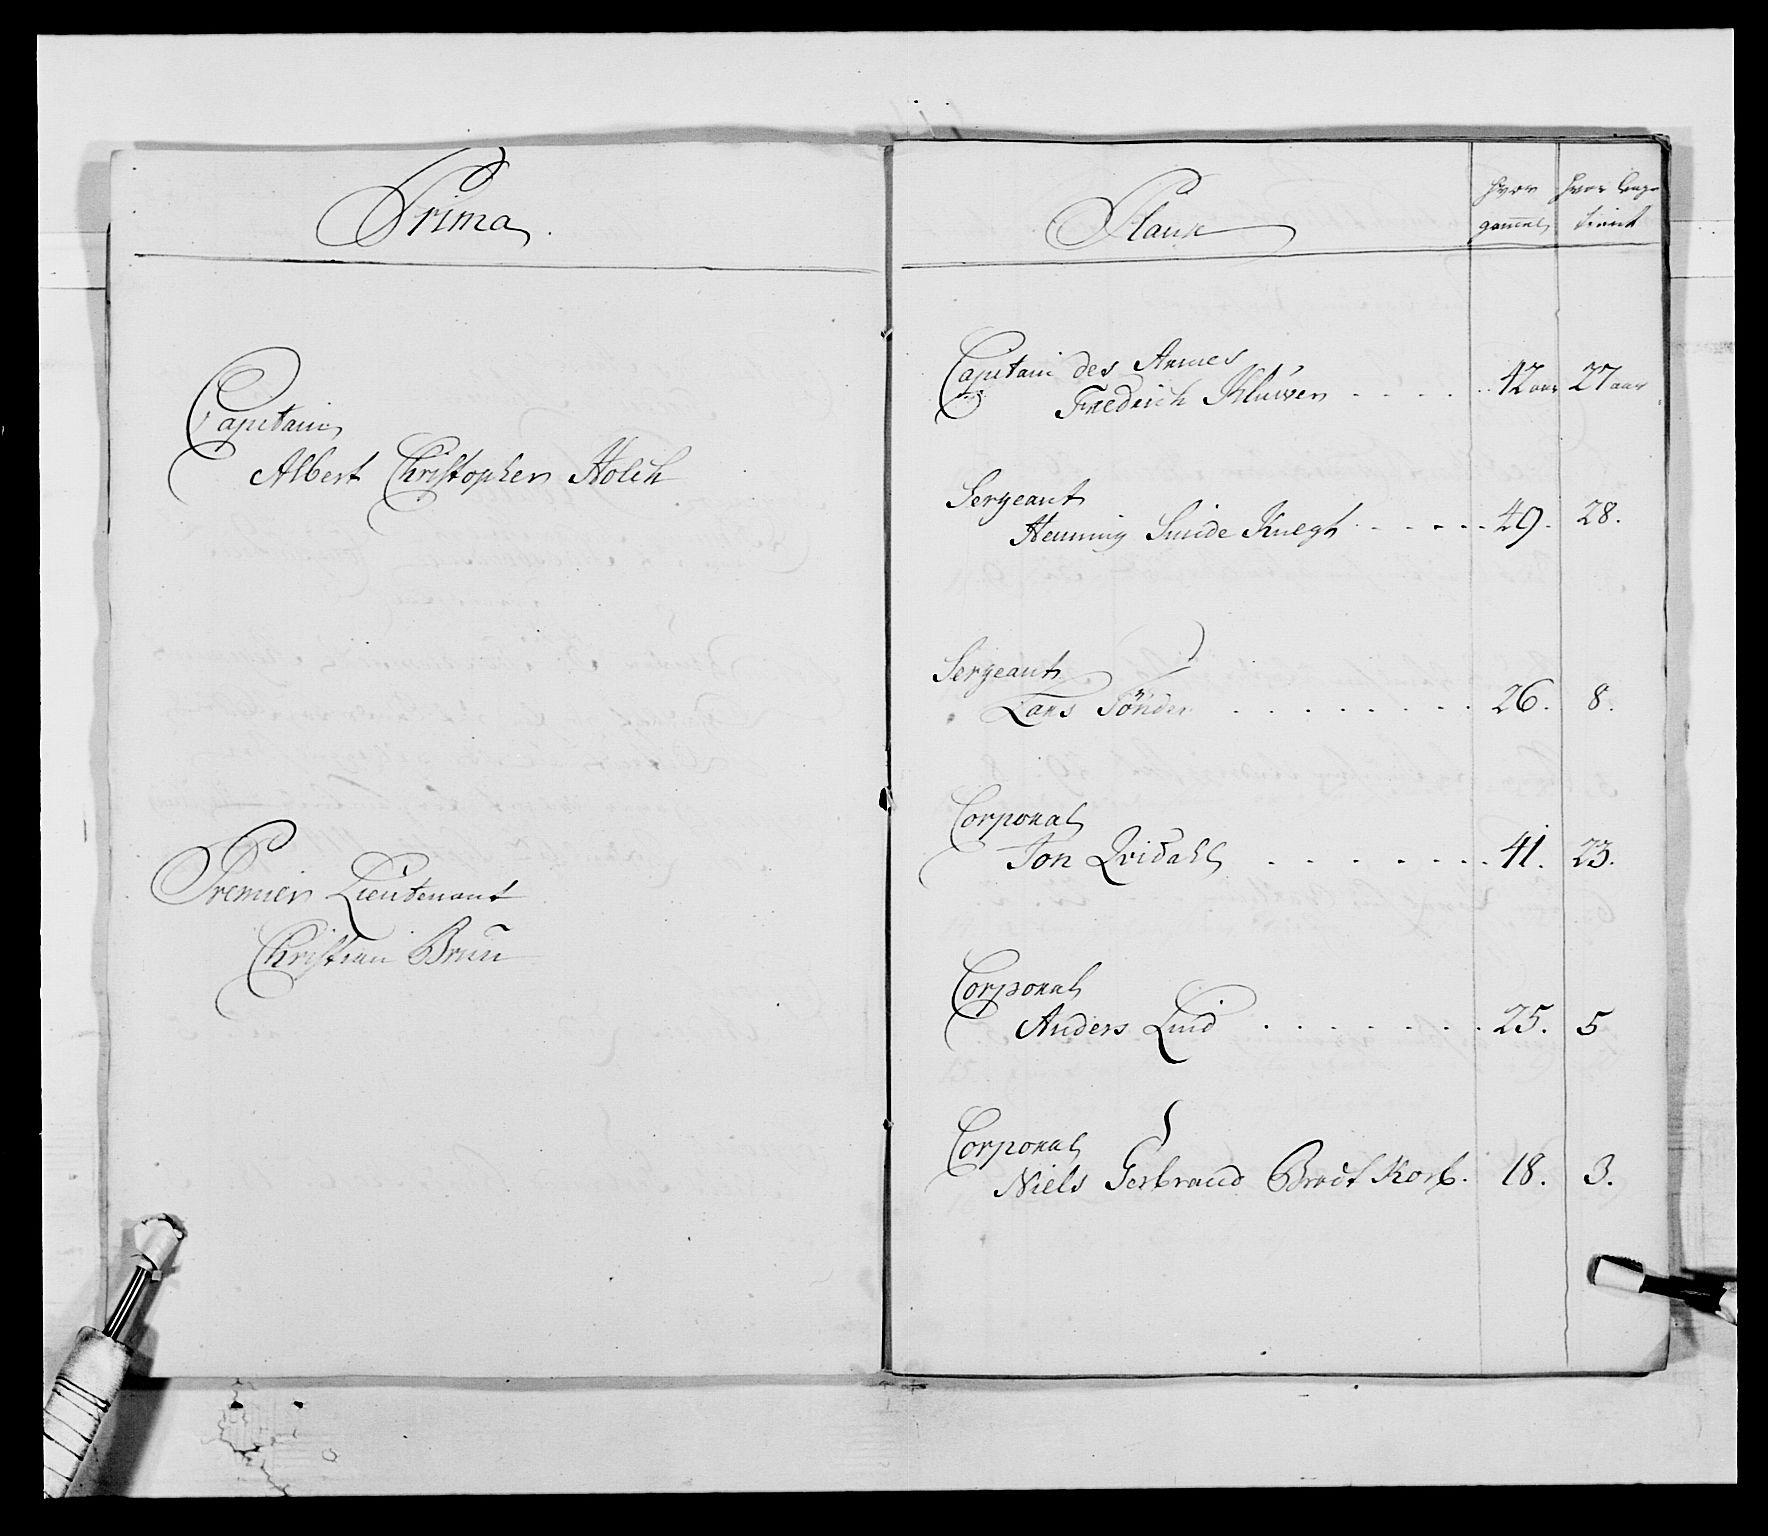 Prima
Capitain
Albert Christopher Holck
Premier Lieutenant
Christian Brun
Plane
hvor gammel
hvor lenge tient
Capitain des Armes
Fredrich Klüwer . . . . . 42 aar 27 aar
Sergeant
Henning Smide Knegh . . . . . 49. 28.
Sergeant
Lars Tönder . . . . . . . . 26. 8.
Corporal
Jon Qvidahl . . . . . . . 41. 23.
Corporal
Anders Lind . . . . . . . 25. 5
Corporal
Niels Gerbrand Brodtkorb. 18. 3.